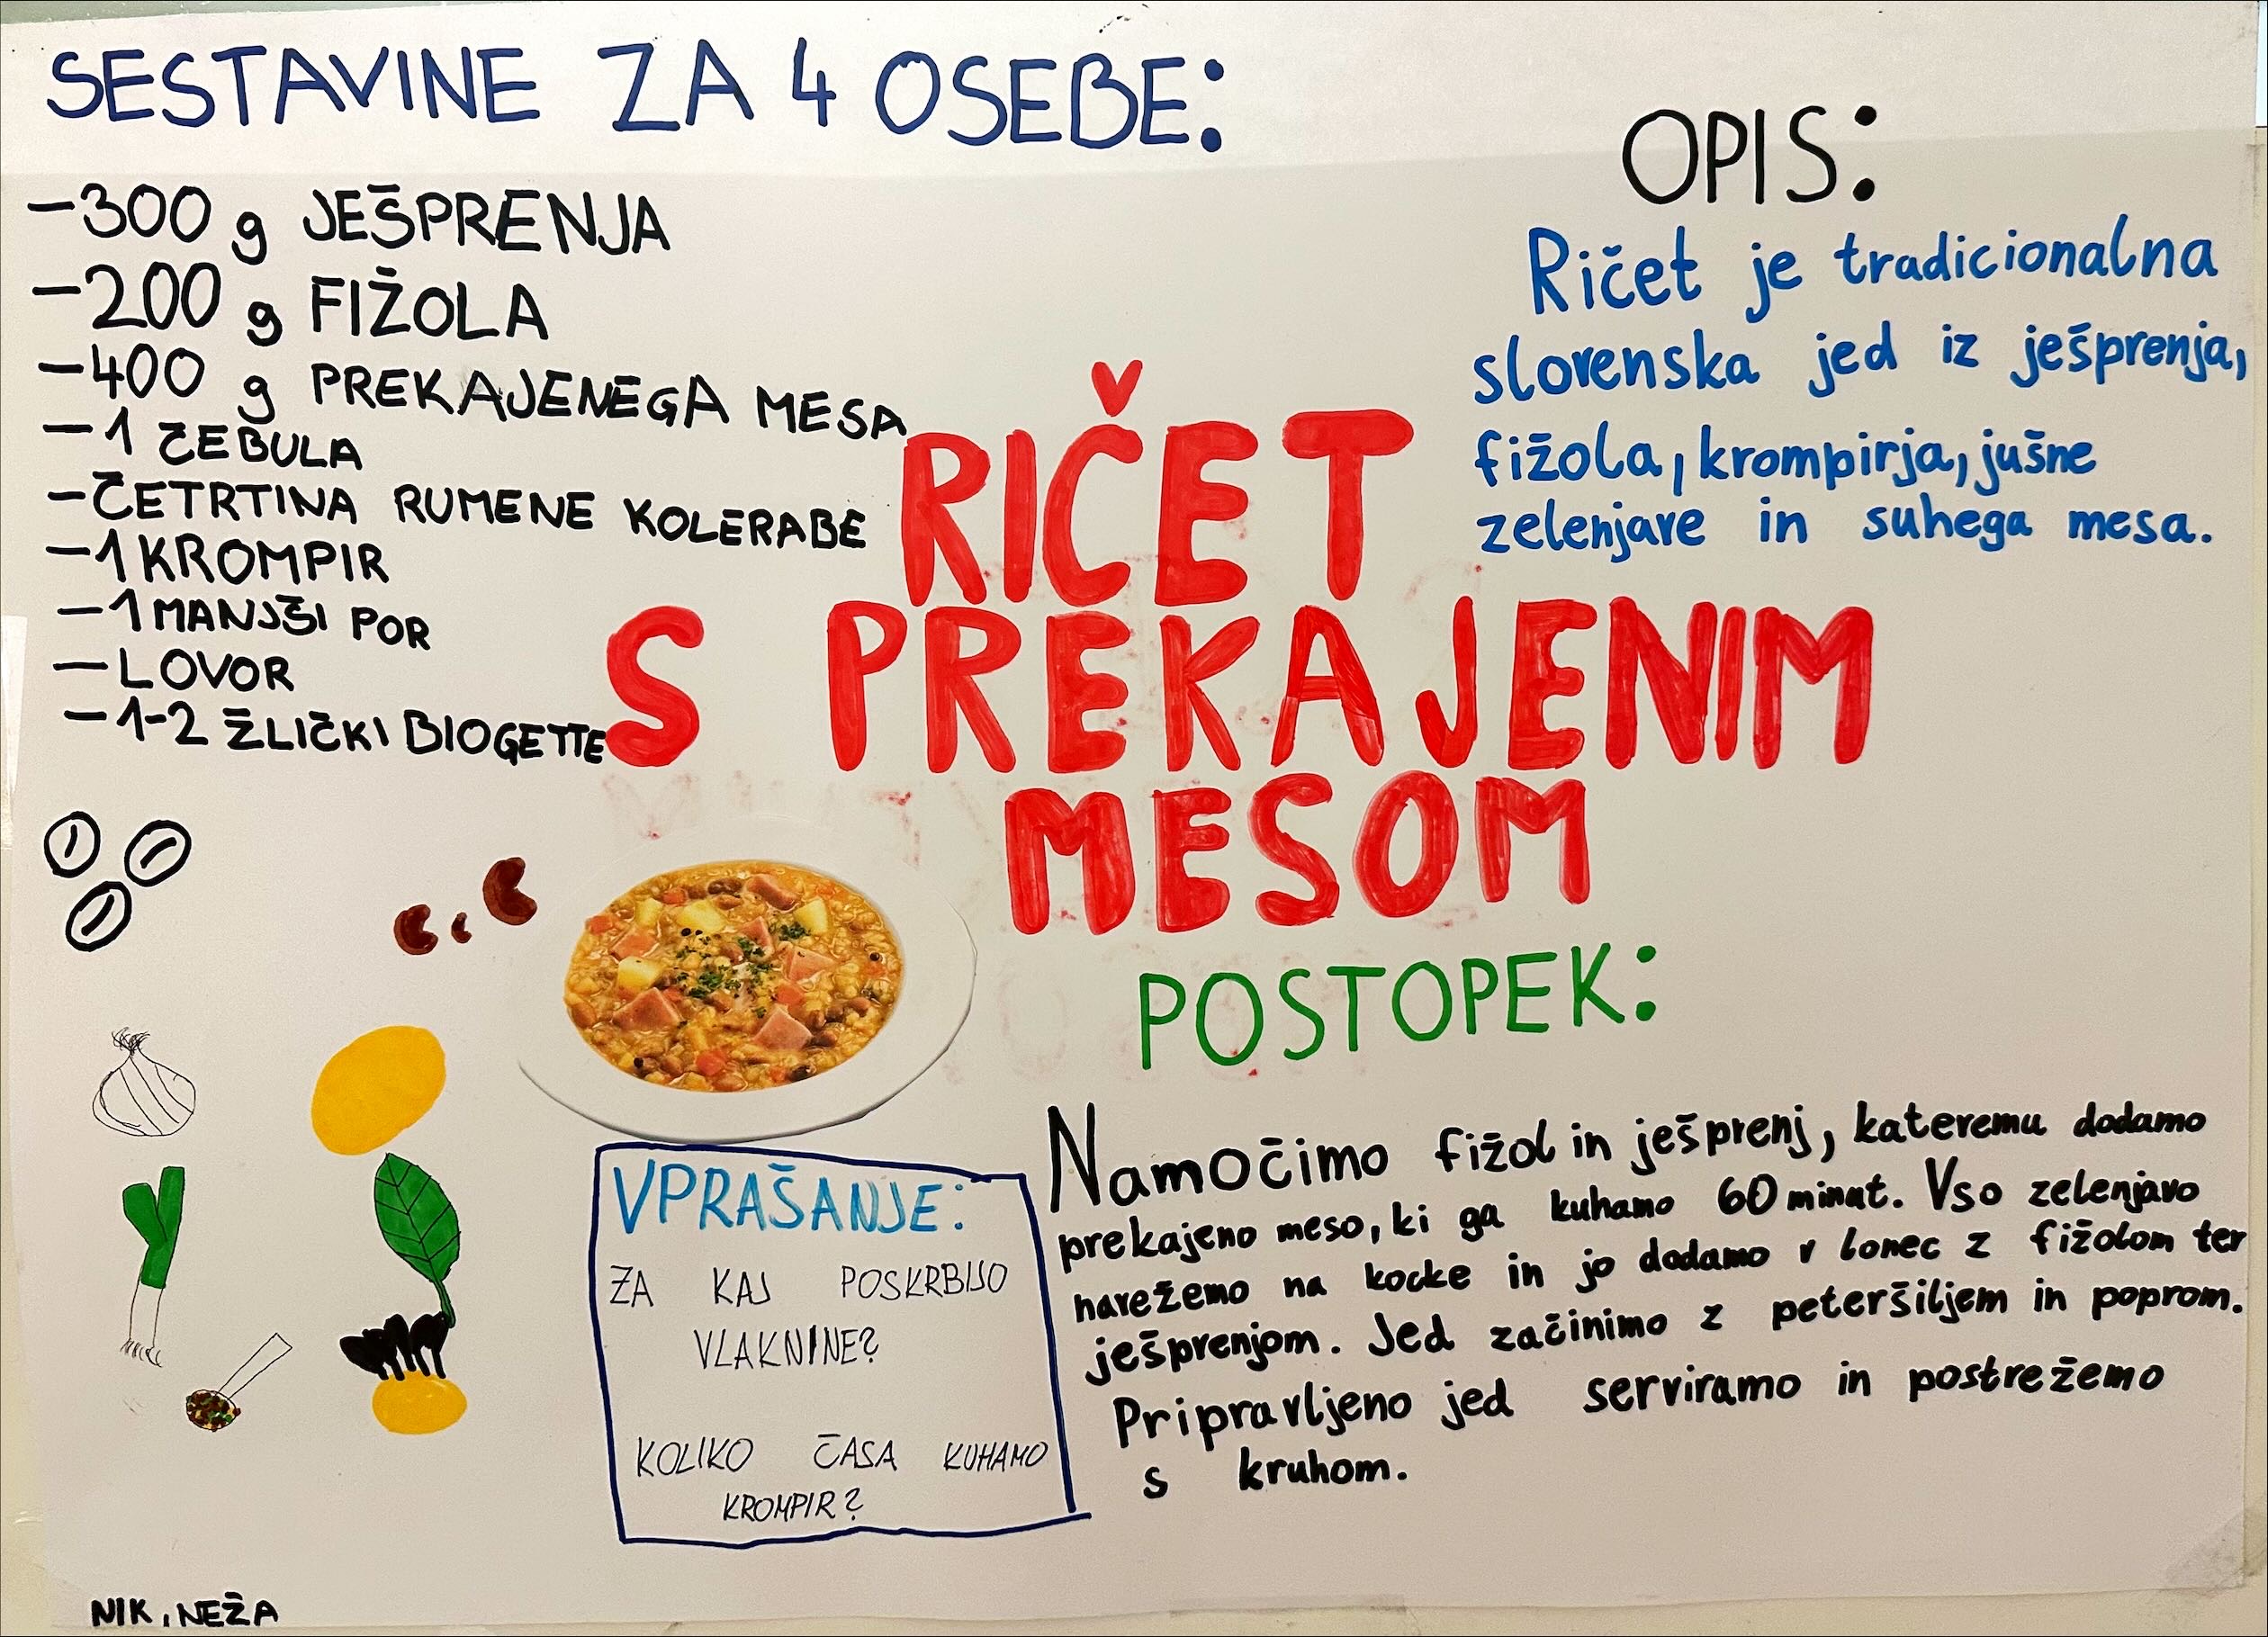 SESTAVINE ZA 4 OSEBE:
-300 g JEŠPRENJA
-200 g FIŽOLA
-400 g PREKAJENEGA MESA
-1 ČEBULA
-ČETRTINA RUMENE KOLERABE
-1 KROMPIR
-1 MANJŠI POR
-LOVOR
-1-2 ŽLIČKI BIOGETTE
OPIS:
Ričet je tradicionalna
slovenska jed iz ješprenja,
fižola, krompirja, jušne
zelenjave in suhega mesa.
RIČET
S PREKAJENIM
MESOM
POSTOPEK:
Namočimo fižol in ješprenj, kateremu dodamo
prekajeno meso, ki ga kuhamo 60 minut. Vso zelenjavo
narežemo na kocke in jo dodamo v lonec z fižolom ter
ješprenjom. Jed začinimo z peteršiljem in poprom.
Pripravljeno jed serviramo in postrežemo
s kruhom.
VPRAŠANJE:
ZA KAJ POSKRBIJO
VLAKNINE?
KOLIKO ČASA KUHAMO
KROMPIR?
NIK, NEŽA